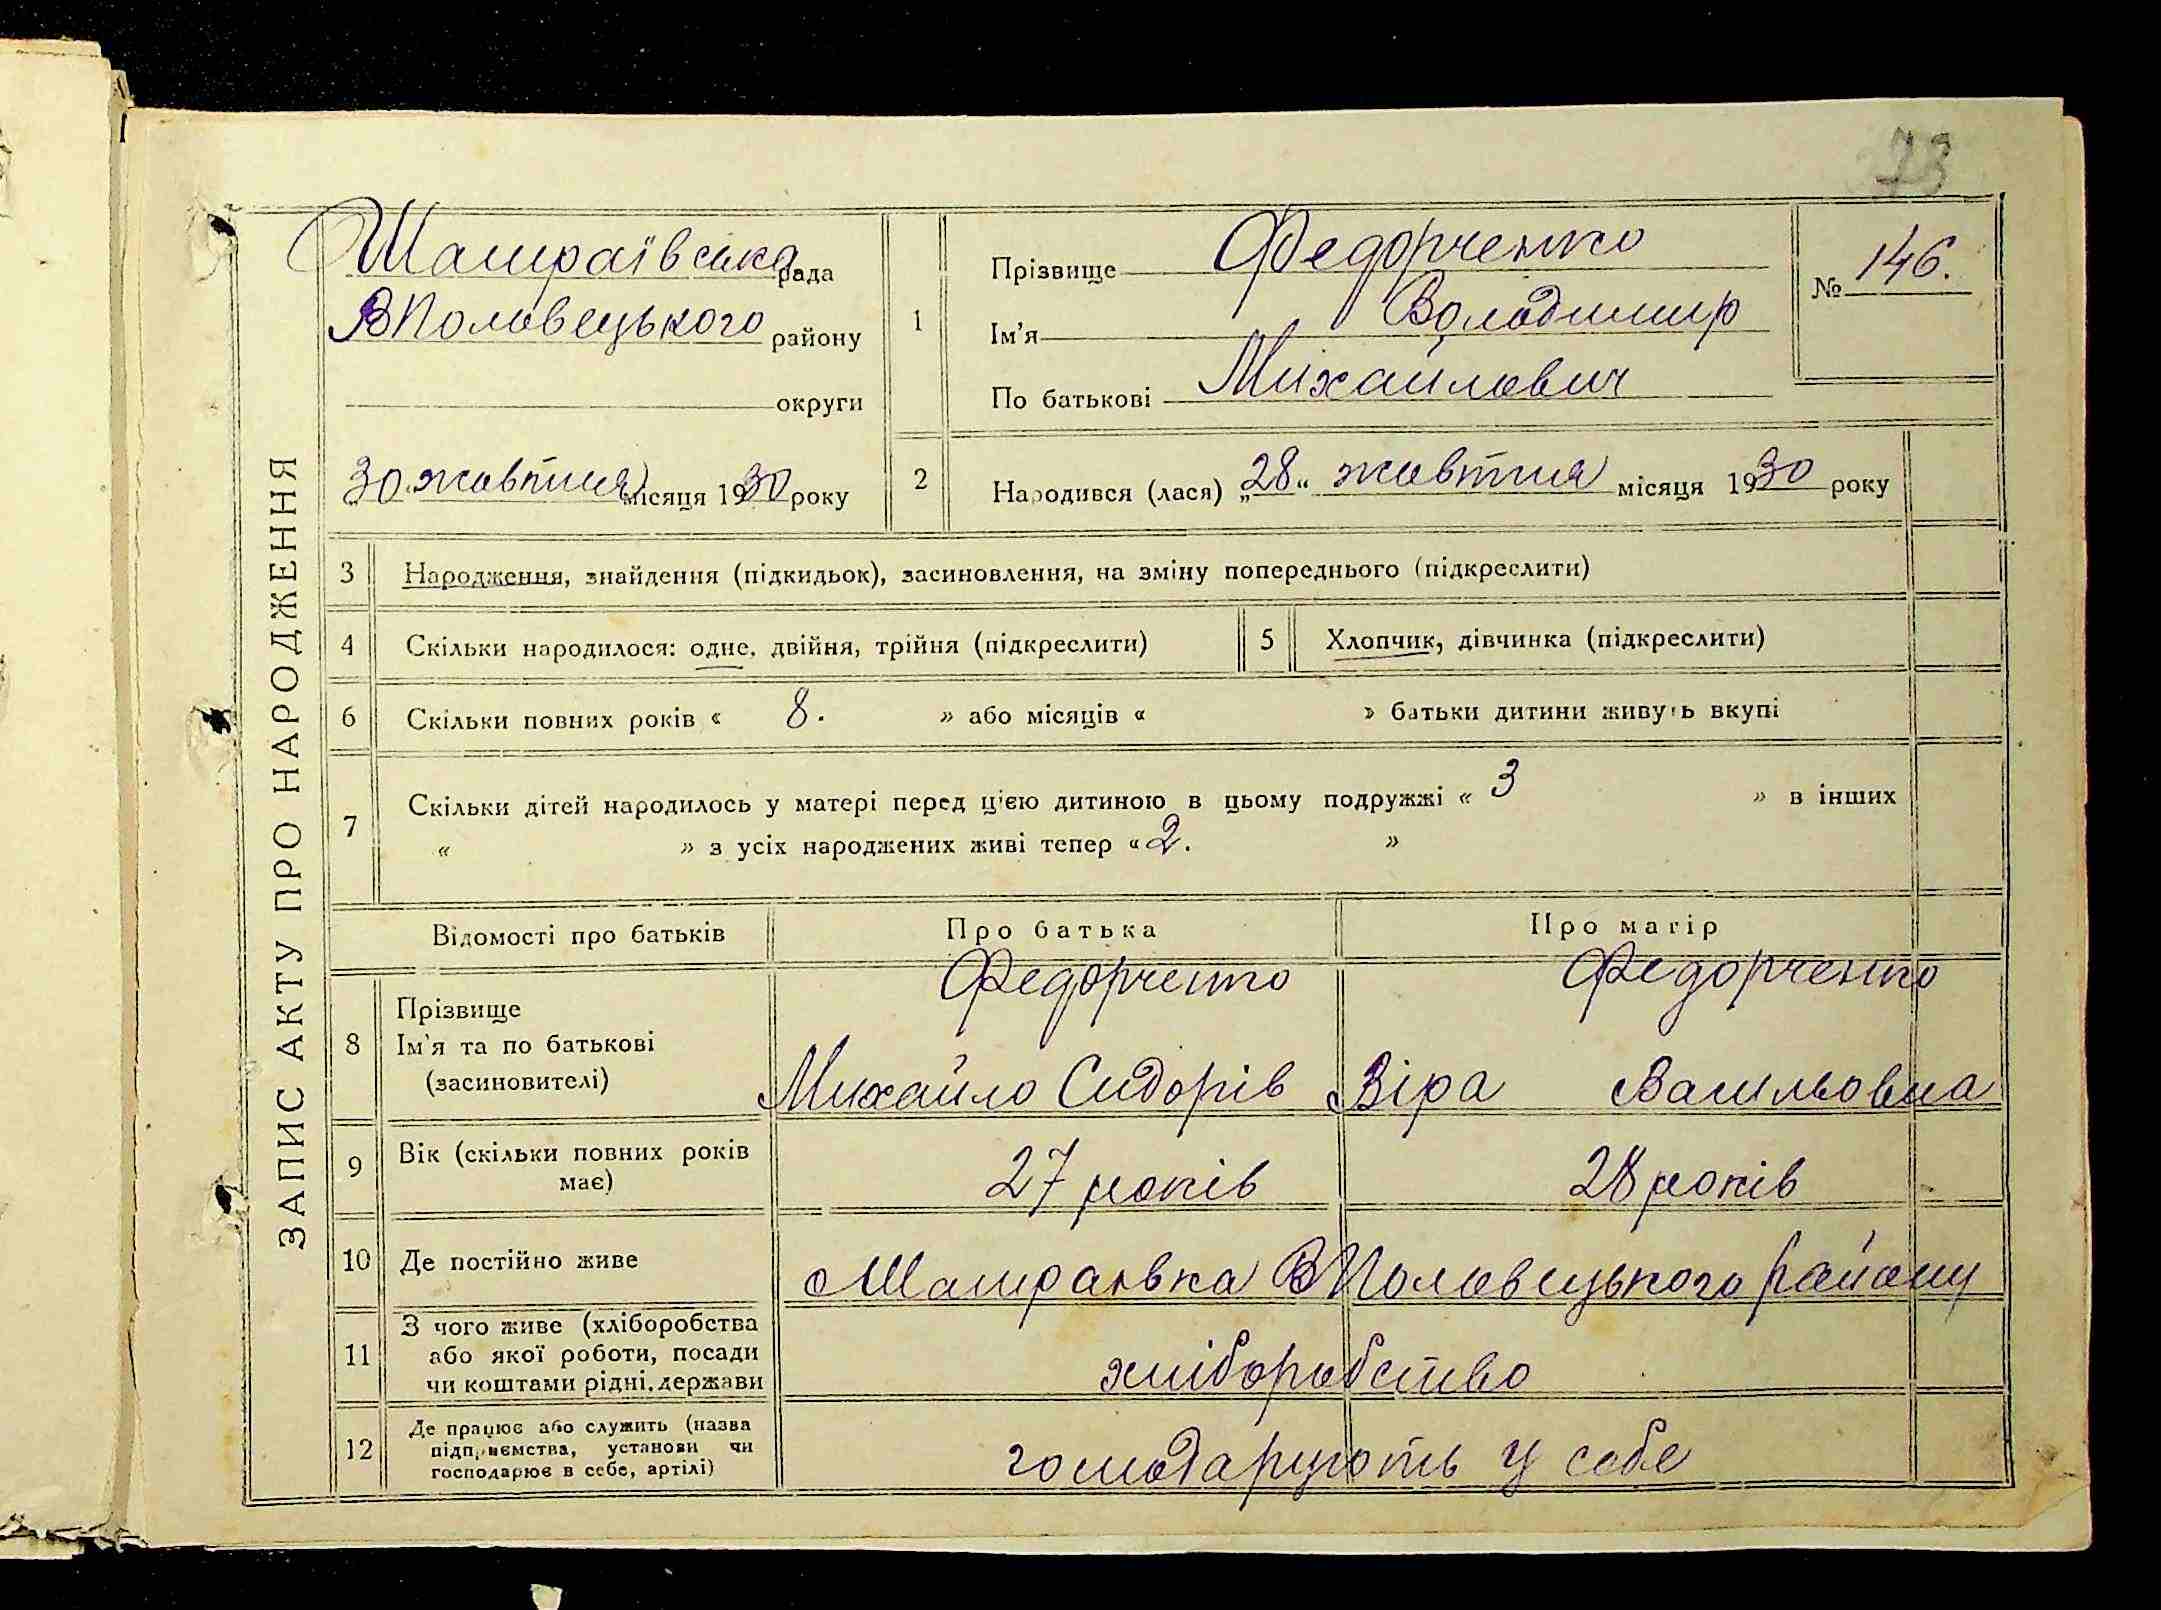 73
ЗАПИС АКТУ ПРО НАРОДЖЕННЯ
Шамраївська рада
ВПоловецького району
округи
30 жовтня місяця 1930 року
1
Прізвище Федорченко
Ім'я Володимир
По батькові Михайлович
№ 146.
2
Народився (лася) „28“ жовтня місяця 1930 року
3 Народження, знайдення (підкидьок), засиновлення, на зміну попереднього (підкреслити)
4 Скільки народилося: одне, двійня, трійня (підкреслити) 5 Хлопчик, дівчинка (підкреслити)
6 Скільки повних років « 8. » або місяців « » батьки дитини живуть вкупі
7 Скільки дітей народилось у матері перед цією дитиною в цьому подружжі « 3 » в інших
« » з усіх народжених живі тепер « 2. »
Відомості про батьків Про батька Про матір
8 Прізвище Федорченко Федорченко
Ім'я та по батькові
(засиновителі) Михайло Сидорів Віра Васильовна
9 Вік (скільки повних років
має) 27 років 28 років
10 Де постійно живе Шамраївка ВПоловецького району
11 З чого живе (хліборобства
або якої роботи, посади
чи коштами рідні, держави хліборобство
12 Де працює або служить (назва
підприємства, установи чи
господарює в себе, артілі) господарують у себе